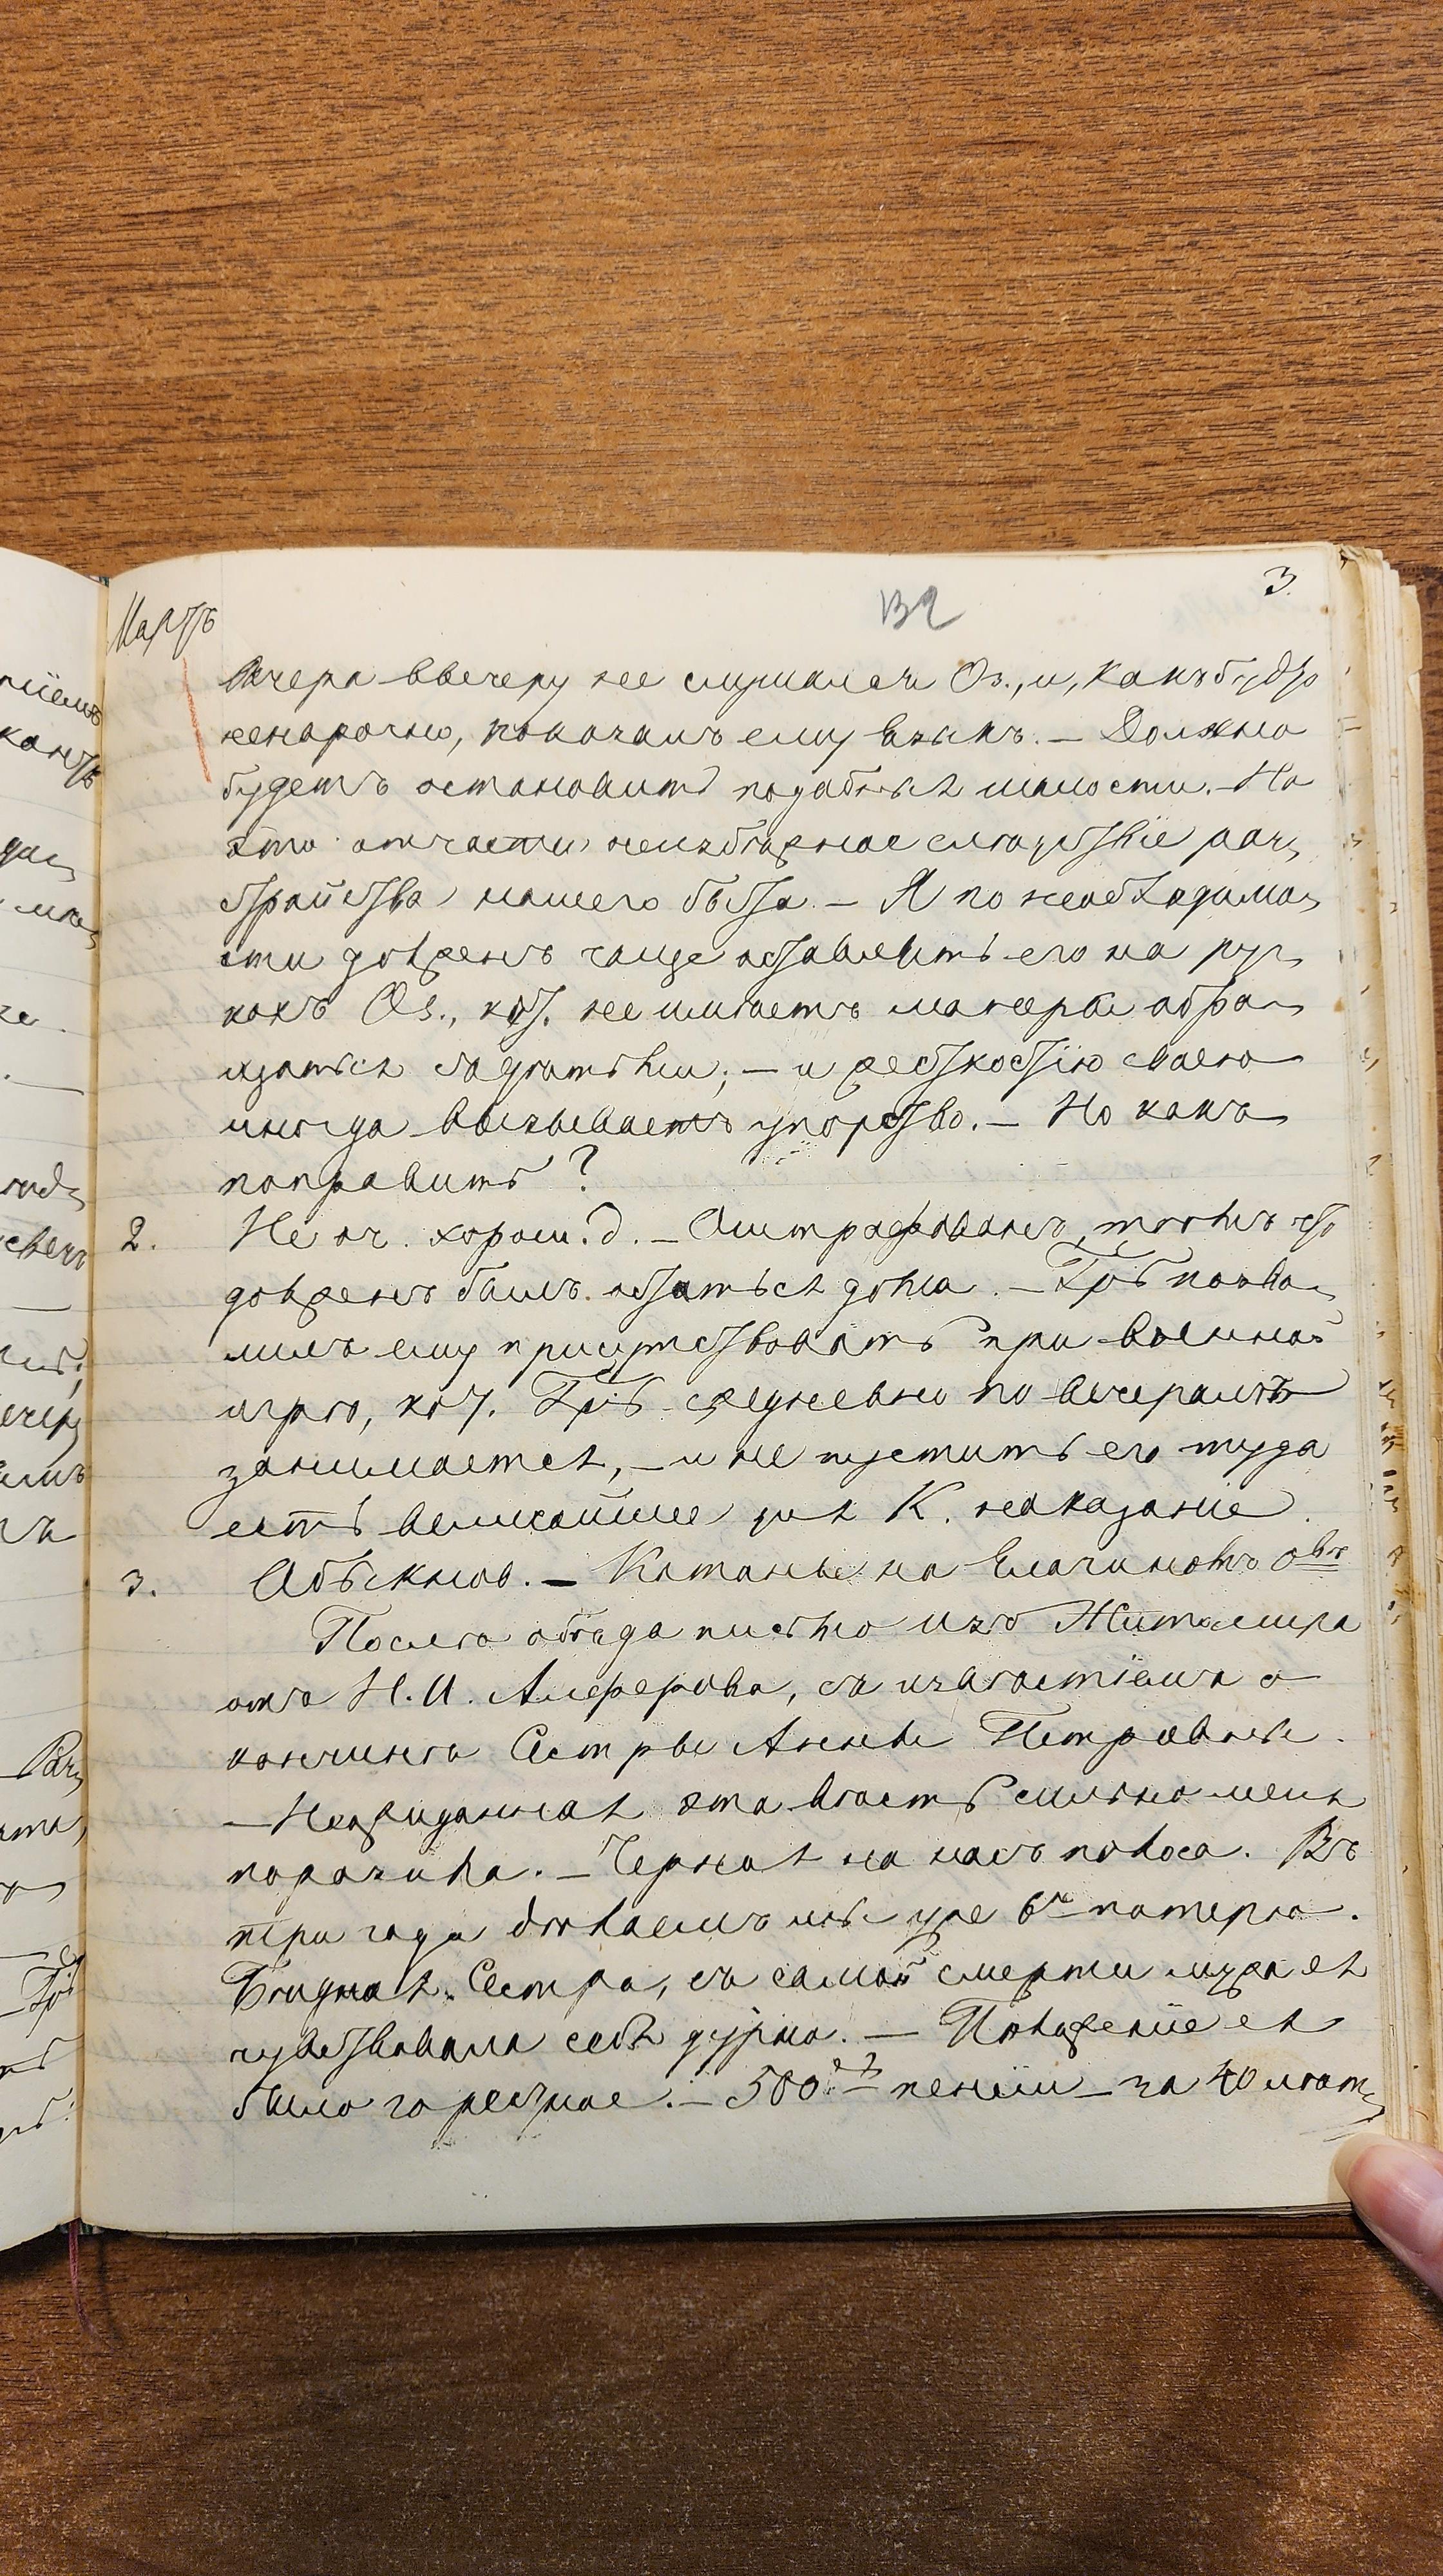 3.
132
Мартъ
Вчера ввечеру не слушался Оз., и, какъ будто
ненарочно, показалъ ему языкъ. — Должно
будетъ остановить подобныя шалости. — Но
это отчасти неизбѣжное слѣдствіе раз,
стройства нашего быта. — Я по необходимо,
сти долженъ чаще оставлять его на ру,
кахъ Оз., кот. не имѣетъ манеры обра,
щаться съ дѣтьми; — и жесткостію своею
иногда вызываетъ упорство. — Но какъ
поправить?
2. Не оч. хорош. д. — Оштрафованъ тѣмъ что
долженъ былъ остаться дома. — позво,
лилъ ему присутствовать при военной
игрѣ, кот. ежедневно по вечерамъ
занимается, — и не пустить его туда
есть величайшее для К. наказаніе.
3. Обыкнов. — Катанье на Елагиномъ о-вѣ
Послѣ обѣда письмо изъ Житомира
отъ Н. И. Алферова, съ извѣстіемъ о
кончинѣ Сестры Анны Петровны.
— Неожиданная эта вѣсть сильно меня
поразила. — Черная на насъ полоса. Въ
три года дѣлаемъ мы уже 6ю потерю.
Бѣдная Сестра, съ самой смерти мужа ея
чувствовала себя дурно. — Положеніе ея
было горестное. — 500 пенсіи — за 40 лѣт,